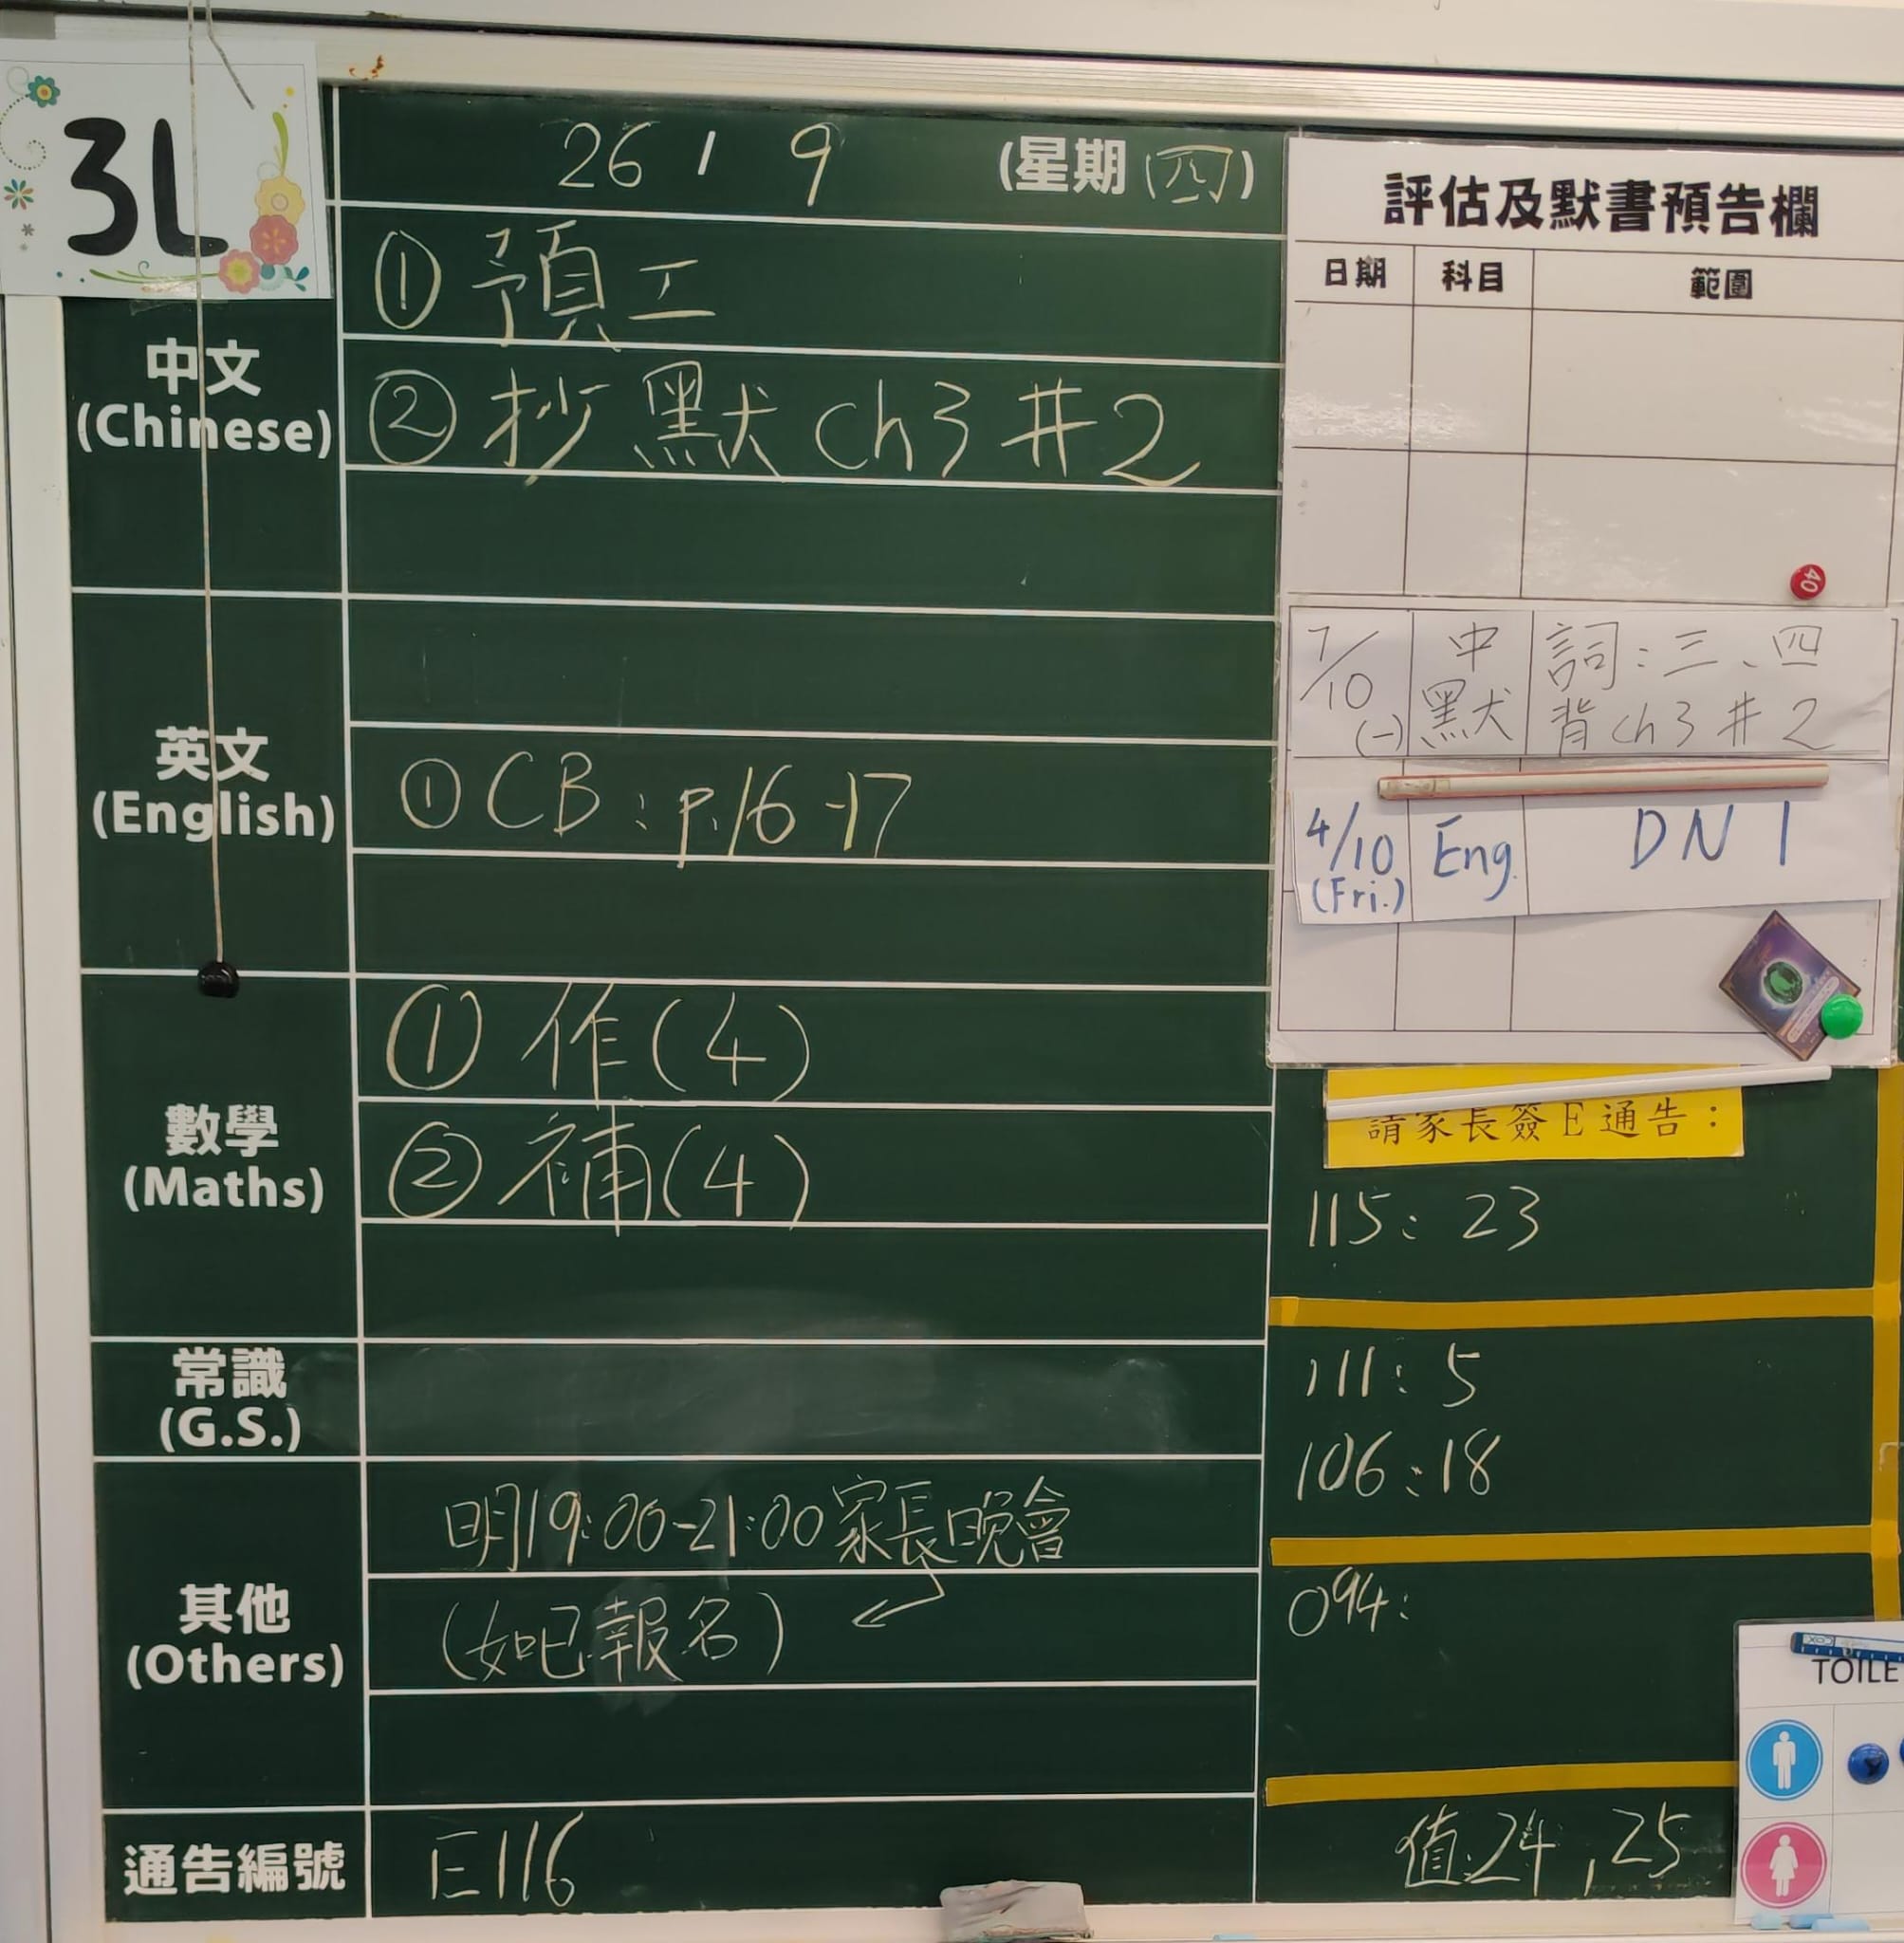 3L
26 / 9 (星期 四)
中文
(Chinese)
① 預工
② 抄默 Ch3 #2
英文
(English)
① CB : p.16-17
數學
(Maths)
① 作(4)
② 補(4)
常識
(G.S.)
其他
(Others)
明19:00-21:00家長晚會
(如已報名)
通告編號
E116
評估及默書預告欄
日期 科目 範圍
40
7/10 (一) 中默 詞:三、四
背 ch3 #2
4/10 (Fri.) Eng. DN 1
請家長簽E通告:
115: 23
111: 5
106: 18
094:
值:24, 25
TOILE